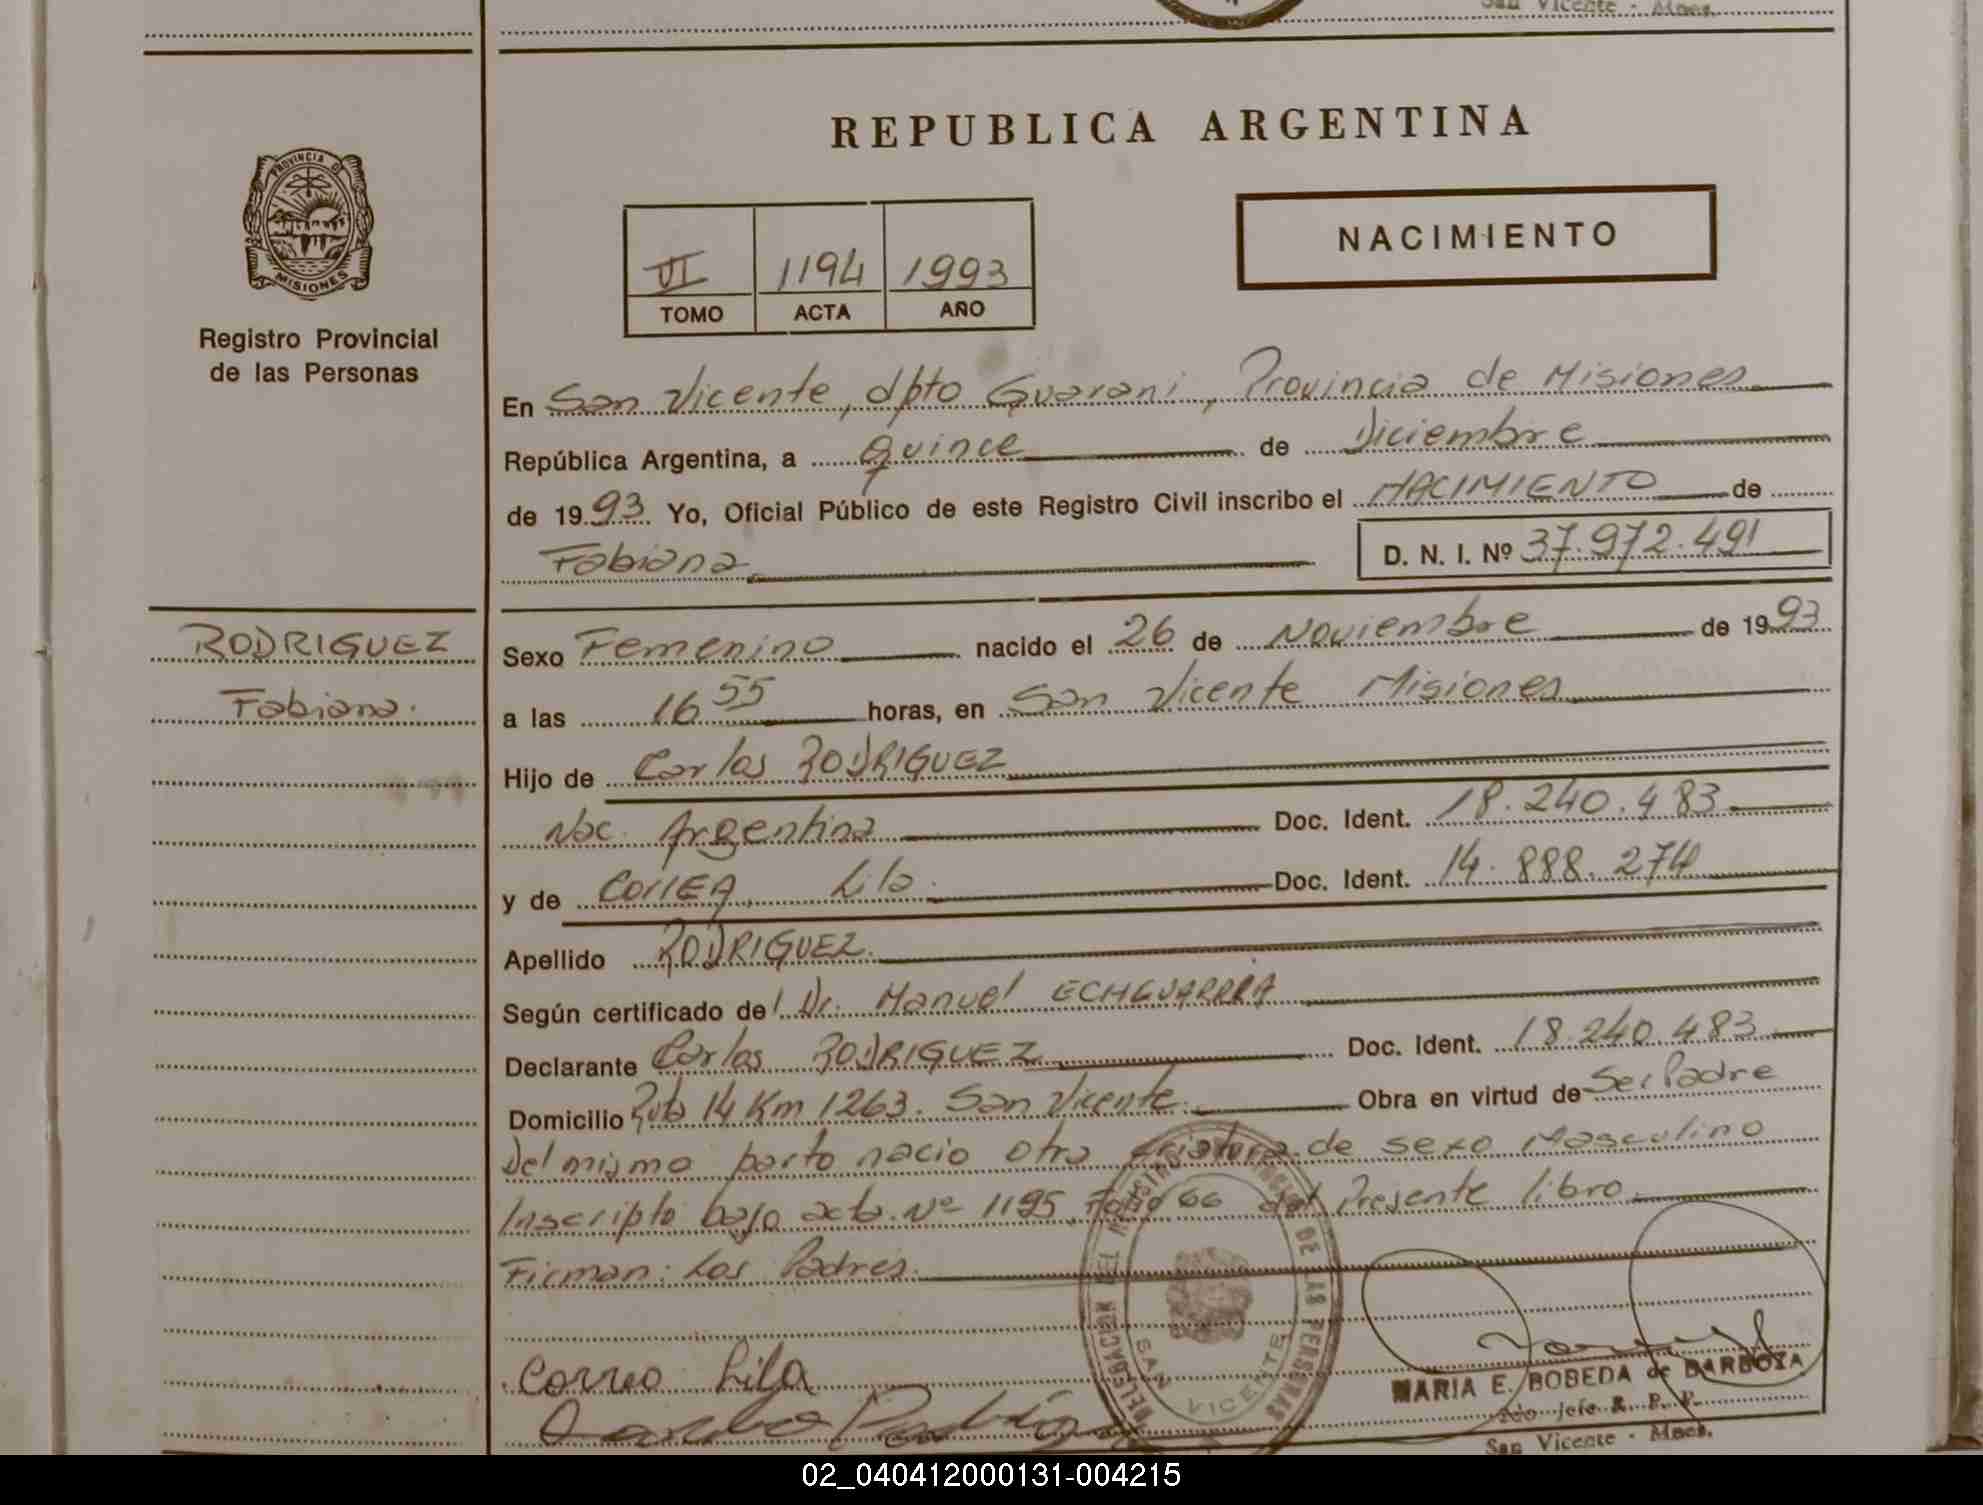 San Vicente - Mnes.
REPUBLICA ARGENTINA
PROVINCIA DE
MISIONES
Registro Provincial
de las Personas
VI 1194 1993
TOMO ACTA AÑO
NACIMIENTO
En San Vicente, dpto Guarani, Provincia de Misiones
República Argentina, a quince de Diciembre
de 1993 Yo, Oficial Público de este Registro Civil inscribo el NACIMIENTO de
Fabiana D. N. I. Nº 37.972.491
RODRIGUEZ
Fabiana.
Sexo Femenino nacido el 26 de Noviembre de 1993
a las 16 55 horas, en San Vicente Misiones
Hijo de Carlos RODRIGUEZ
Nac. Argentina Doc. Ident. 18.240.483
y de CorrEA, Lila. Doc. Ident. 14.888.274
Apellido RODRIGUEZ.
Según certificado del Dr. Manuel
Declarante Carlos RODRIGUEZ Doc. Ident. 18.240.483
Domicilio Ruta 14 Km 1263. San Vicente. Obra en virtud de Ser Padre
Del mismo parto nacio otra criatura de sexo Masculino
Inscripto bajo acta Nº 1195 Folio 66 del Presente libro.
Firman: Los Padres.
Correa Lila
DELEGACION DE LAS PERSONAS
SAN VICENTE
MARIA E. BOBEDA de BARBOZA
2do Jefe R. P. P.
San Vicente - Mnes.
02_040412000131-004215